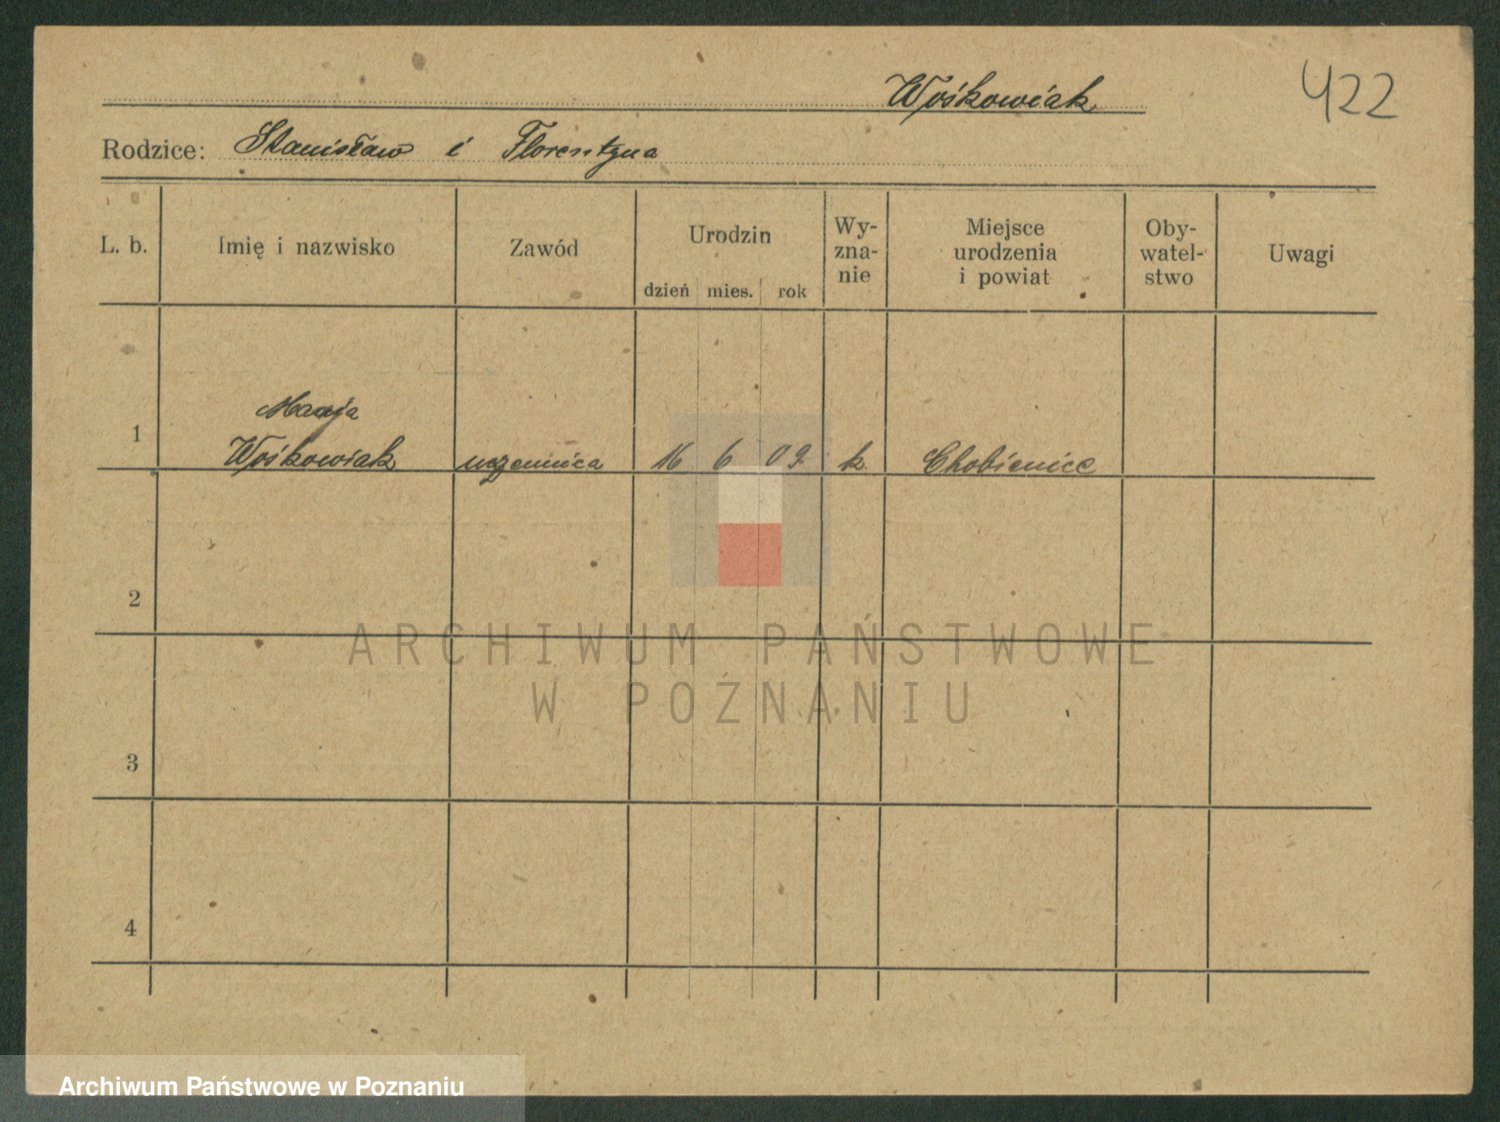 Wośkowiak
422
Rodzice: Stanisław i Florentyna
L. b. Imię i nazwisko Zawód Urodzin dzień mies. rok Wy-zna-nie Miejsce urodzenia i powiat Oby-watel-stwo Uwagi
Marja
1 Wośkowiak uczennica 16 6 09 k Chobienice
2
ARCHIWUM PAŃSTWOWE
W POZNANIU
3
4
Archiwum Państwowe w Poznaniu